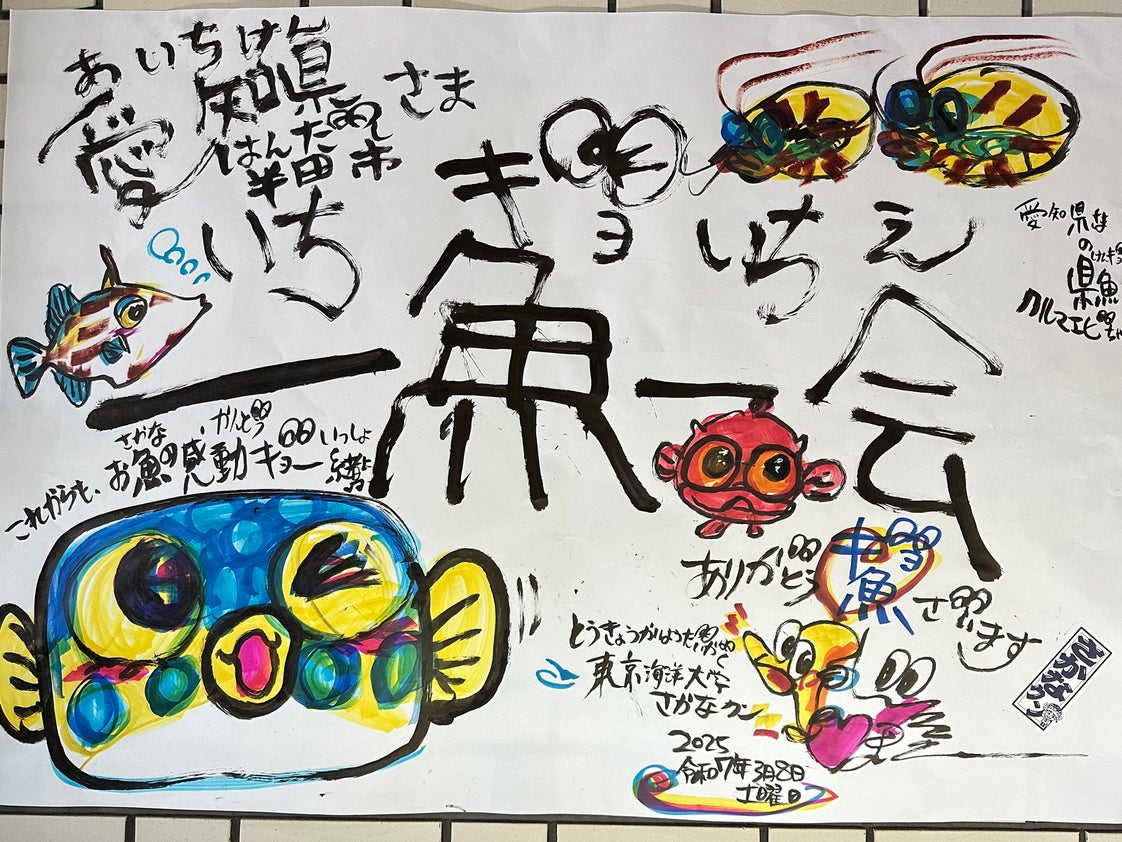 あいちけん さま
愛知県
はんだし
半田市
いち ギョ いち え
一魚一会
愛知県
の けんギョ
県魚
クルマエビ
さかな かんどう
これからも、お魚の感動ギョー いっしょ
緒
ありがとう ギョ
魚 ざいます
とうきょうかいようだいがく
東京海洋大学
さかなクン
さかなクン
2025
令和7年3月8日
土曜日